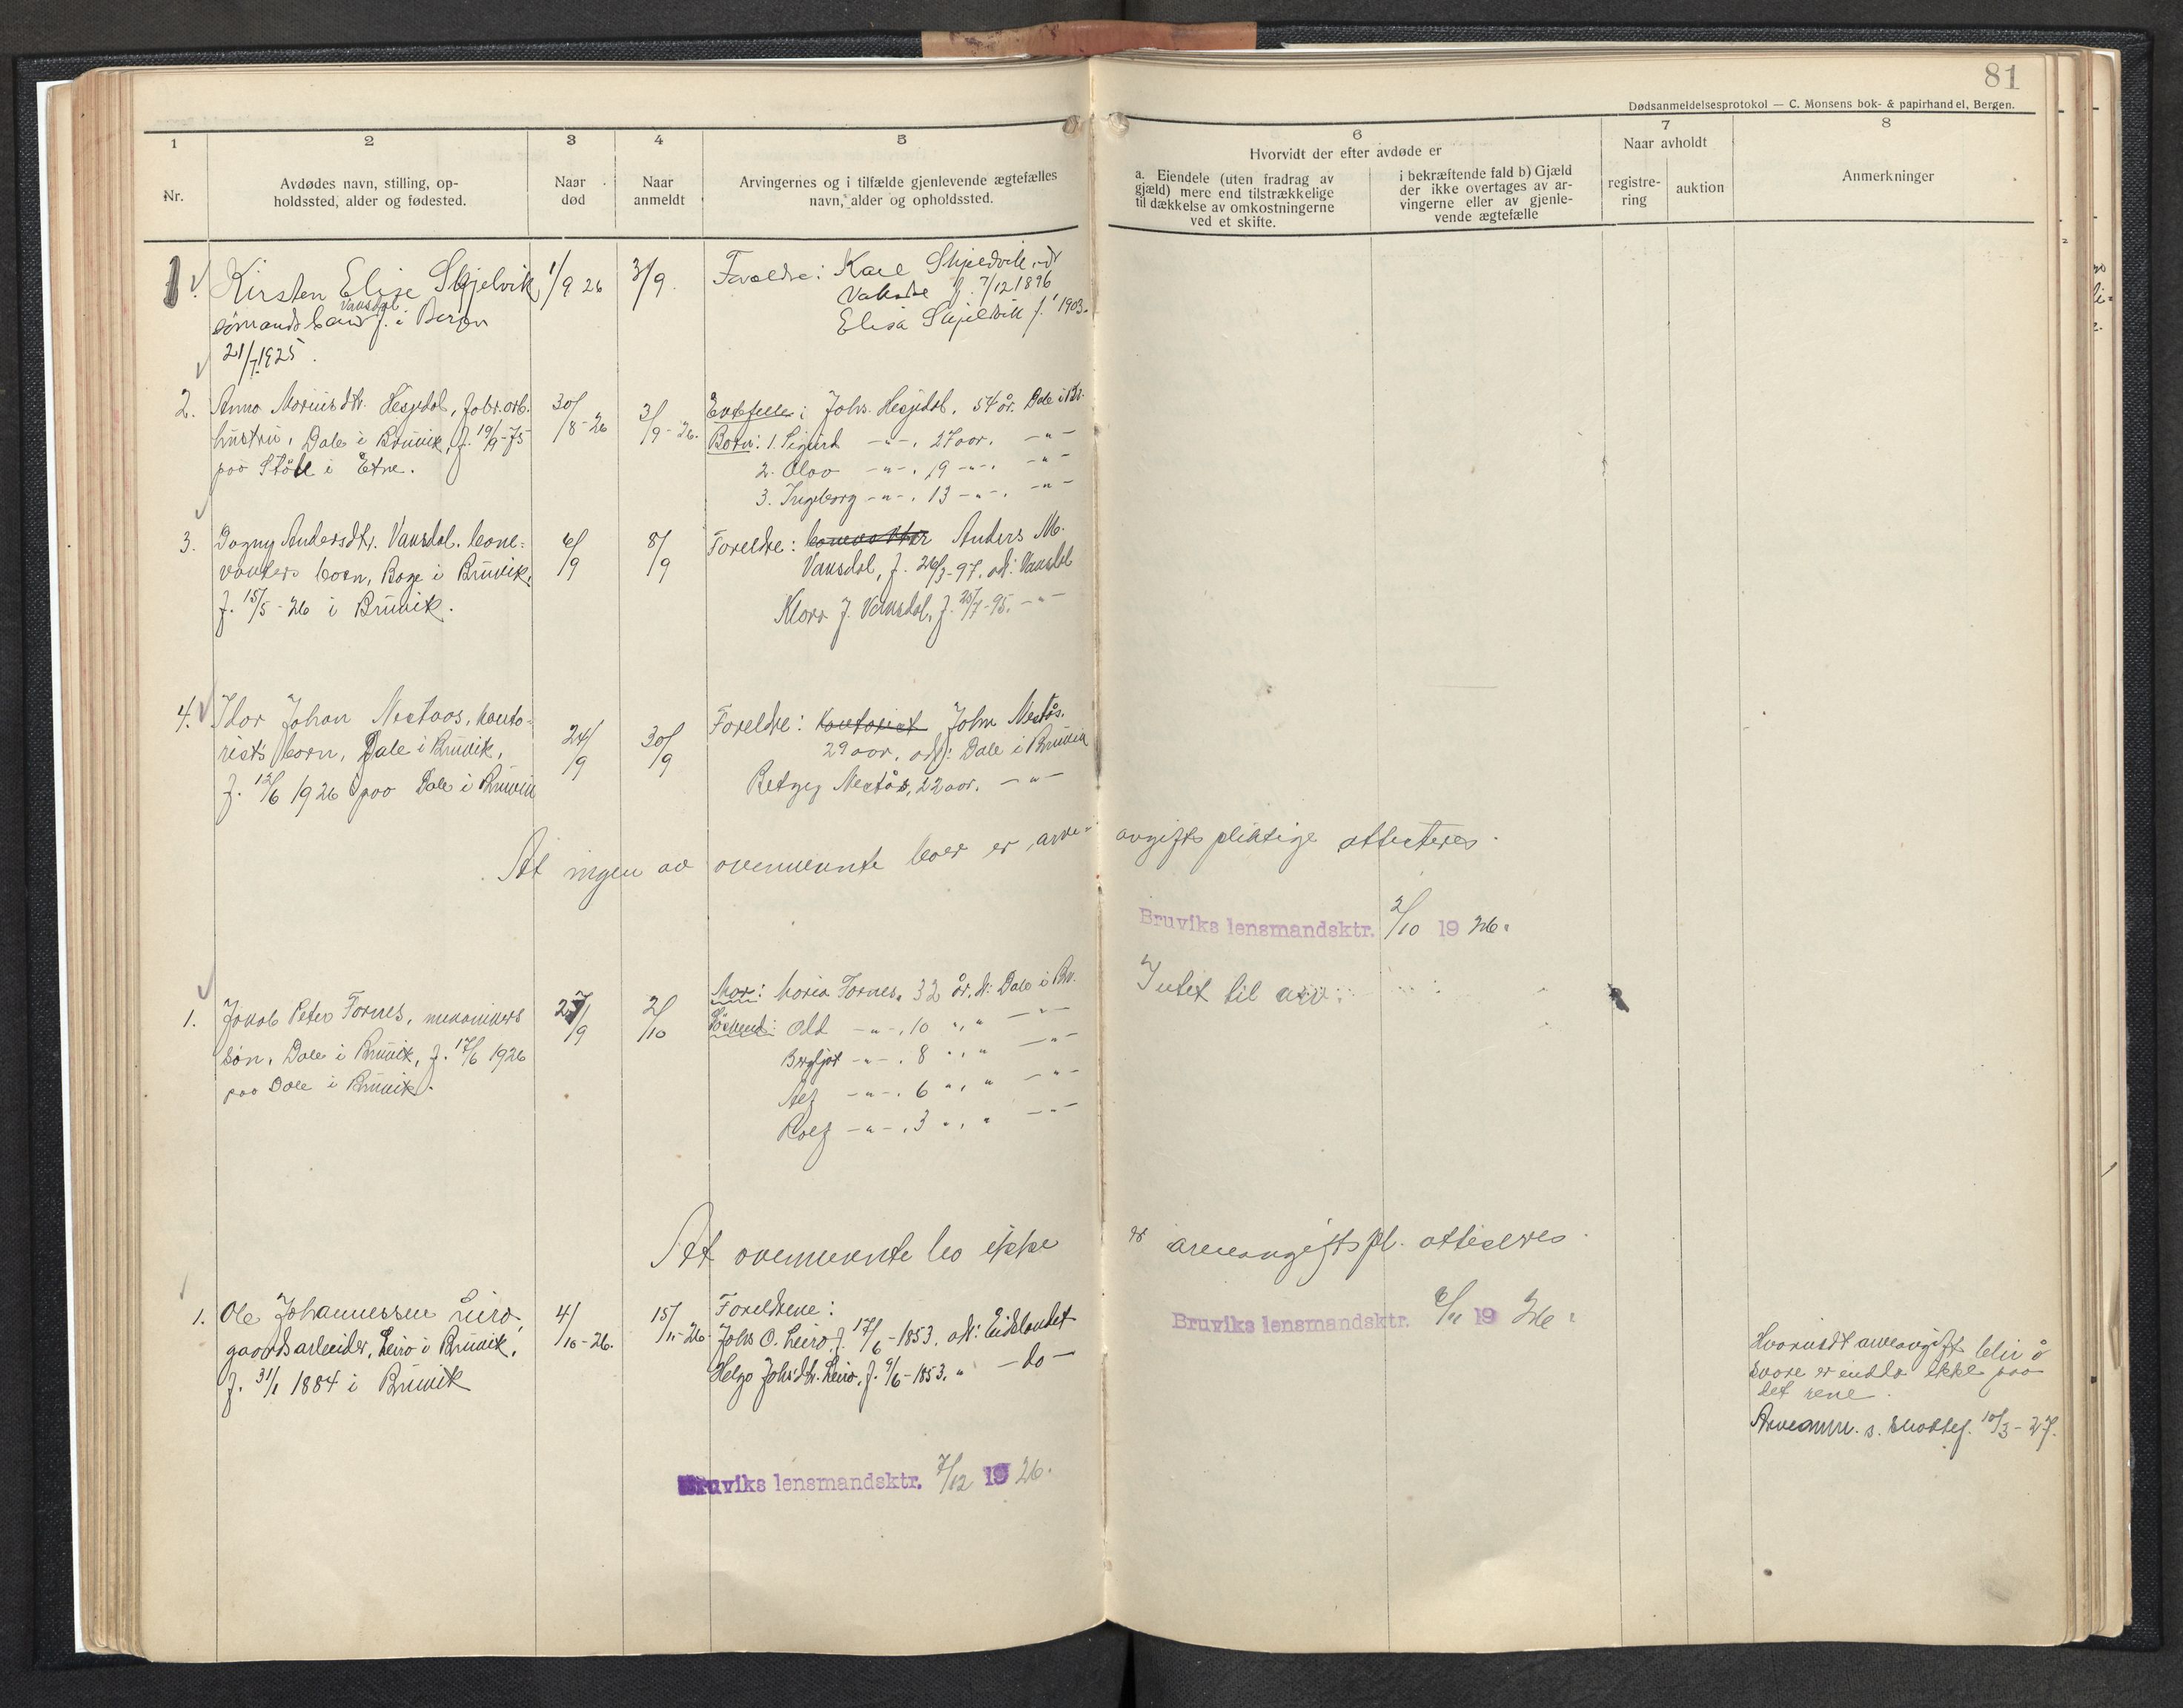 81
Dødsanmeldelsesprotokol — C. Monsens bok- & papirhandel, Bergen.
1
2
3
4
5
6
7
8
Nr.
Avdødes navn, stilling, op-
holdssted, alder og fødested.
Naar
død
Naar
anmeldt
Arvingernes og i tilfælde gjenlevende ægtefælles
navn, alder og opholdssted.
Hvorvidt der efter avdøde er
a. Eiendele (uten fradrag av
gjæld) mere end tilstrækkelige
til dækkelse av omkostningerne
ved et skifte.
i bekræftende fald b) Gjæld
der ikke overtages av ar-
vingerne eller av gjenle-
vende ægtefælle
Naar avholdt
registre-
ring
auktion
Anmerkninger
1. Kirsten Elise Skjelvik 1/9 26 3/9. Forældre: Karl
Vaksdal f. 7/12 1896
sömands barn f. i Bergen Elisa f. 1903.
21/7 1925.
2. Anna Mariusdtr. Hesjedal, fabr.arb. 30/8-26 3/9-26. Ektefelle: Johs. Hesjedal, 54 år. Dale i Br.
hustru, Dale i Bruvik, f. 19/9-75 Born: 1. Sigurd -"-, 27 aar. -"-
paa Stöle i Etne. 2. Olav -"-, 19 -"-. -"-
3. Ingeborg -"-, 13 -"-. -"-
3. Dagny Andersdtr. Vaksdal, bane- 6/9 8/9 Foreldre: Anders M.
vokters born, Boge i Bruvik, Vaksdal, f. 26/3-97. adr: Vaksdal
f. 15/5-26 i Bruvik. Klara J. Vaksdal, f. 20/7-95. -"-
4. Johan Nestaas, konto- 24/9 30/9 Foreldre: kontorist John Nestås.
rists born, Dale i Bruvik, 29 aar, adr: Dale i Bruvik
f. 12/6 1926 paa Dale i Bruvik Nestås, 22 aar. -"-
At ingen av ovennevnte boer er arve- avgiftspliktige attesteres.
Bruviks lensmandsktr. 2/10 1926.
1. Jakob Peter Fornes, mekanikers 27/9 2/10 Mor: Maria Fornes, 32 år, Dale i Br. Intet til arv.
sön, Dale i Bruvik, f. 17/6 1926 Söskend: Odd -"-, 10 "," -"-
paa Dale i Bruvik. Bergljot -"-, 8 "," -"-
-"-, 6 "," -"-
Rolf -"-, 3 "," -"-
At ovennevnte bo ikke er arveavgiftspl. attesteres.
Bruviks lensmandsktr. 1926.
1. Ole Johannessen Leiro, 4/10-26. 15/11-26. Foreldrene:
gaardsarbeider, Leiro i Bruvik, Johs O. Leiro, f. 17/6-1853. adr: Eidslandet
f. 31/1 1884 i Bruvik Helga Johsdtr. Leiro, f. 9/6-1853. " -do-
Hvorvidt arveavgift blir å
svare er endda ikke paa
det rene.
Arveanm. s. skattef. 10/3-27.
Bruviks lensmandsktr. 7/12 1926.